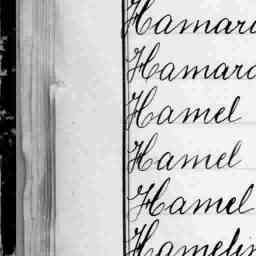 Hamar
Hamar
Hamel
Hamel
Hamel
Hamelin